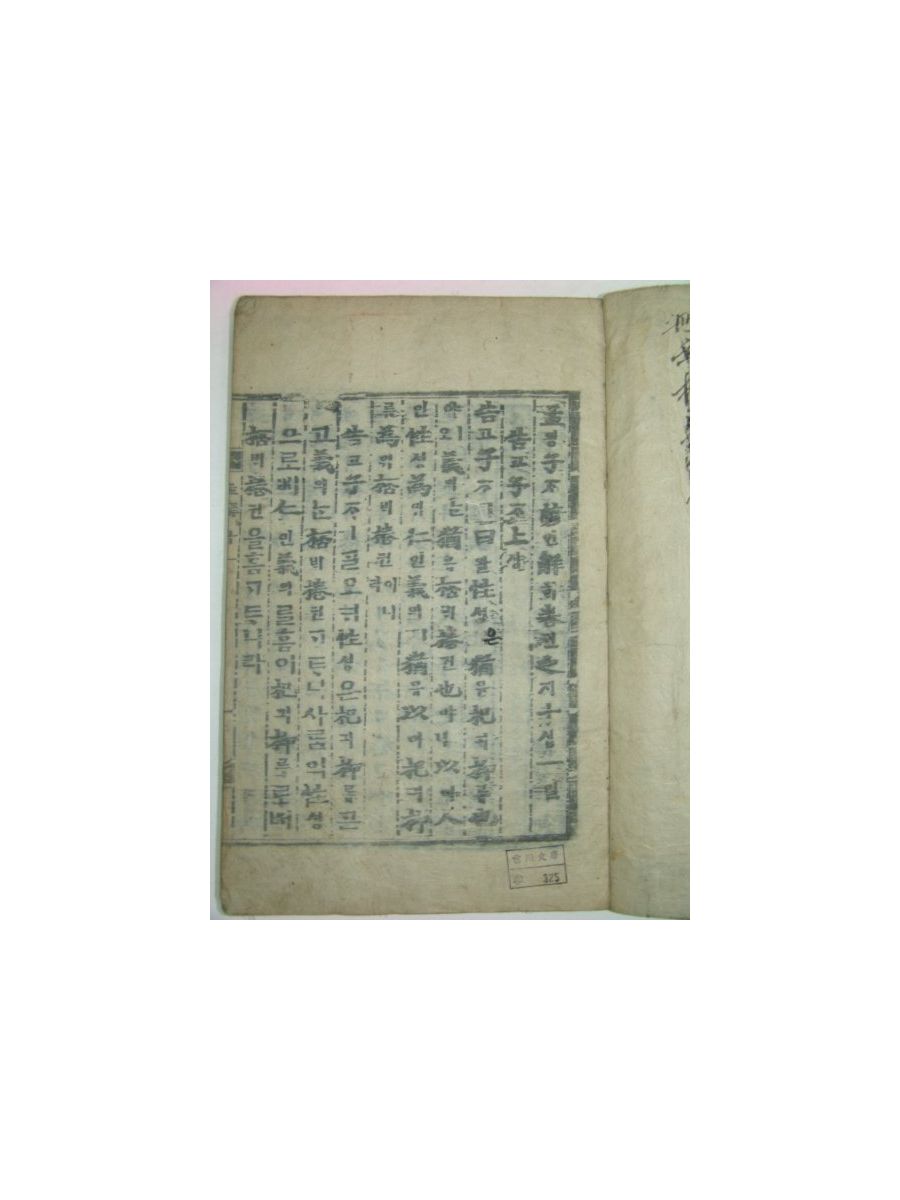 孟ᄆᆡᆼ子ᄌᆞ諺언解ᄒᆡ卷권之지十십一일
告고子ᄌᆞ上샹
告고子ᄌᆞㅣ曰왈性셩은猶유杞긔柳류也
야오義의ᄂᆞᆫ猶유桮ᄇᆡ棬권也야ㅣ니以이人
인性셩爲위仁인義의ㅣ猶유以이杞긔柳
류爲위桮ᄇᆡ棬권이니라
告고子ᄌᆞㅣᄀᆞᆯ오ᄃᆡ性셩은杞긔柳류ᄀᆞᆮ
고義의ᄂᆞᆫ桮ᄇᆡ棬권ᄀᆞᄐᆞ니사ᄅᆞᆷ의性셩
으로ᄡᅥ仁인義의ᄅᆞᆯ홈이杞긔柳류로ᄡᅥ
桮ᄇᆡ棬권을홈ᄀᆞᄐᆞ니라
325